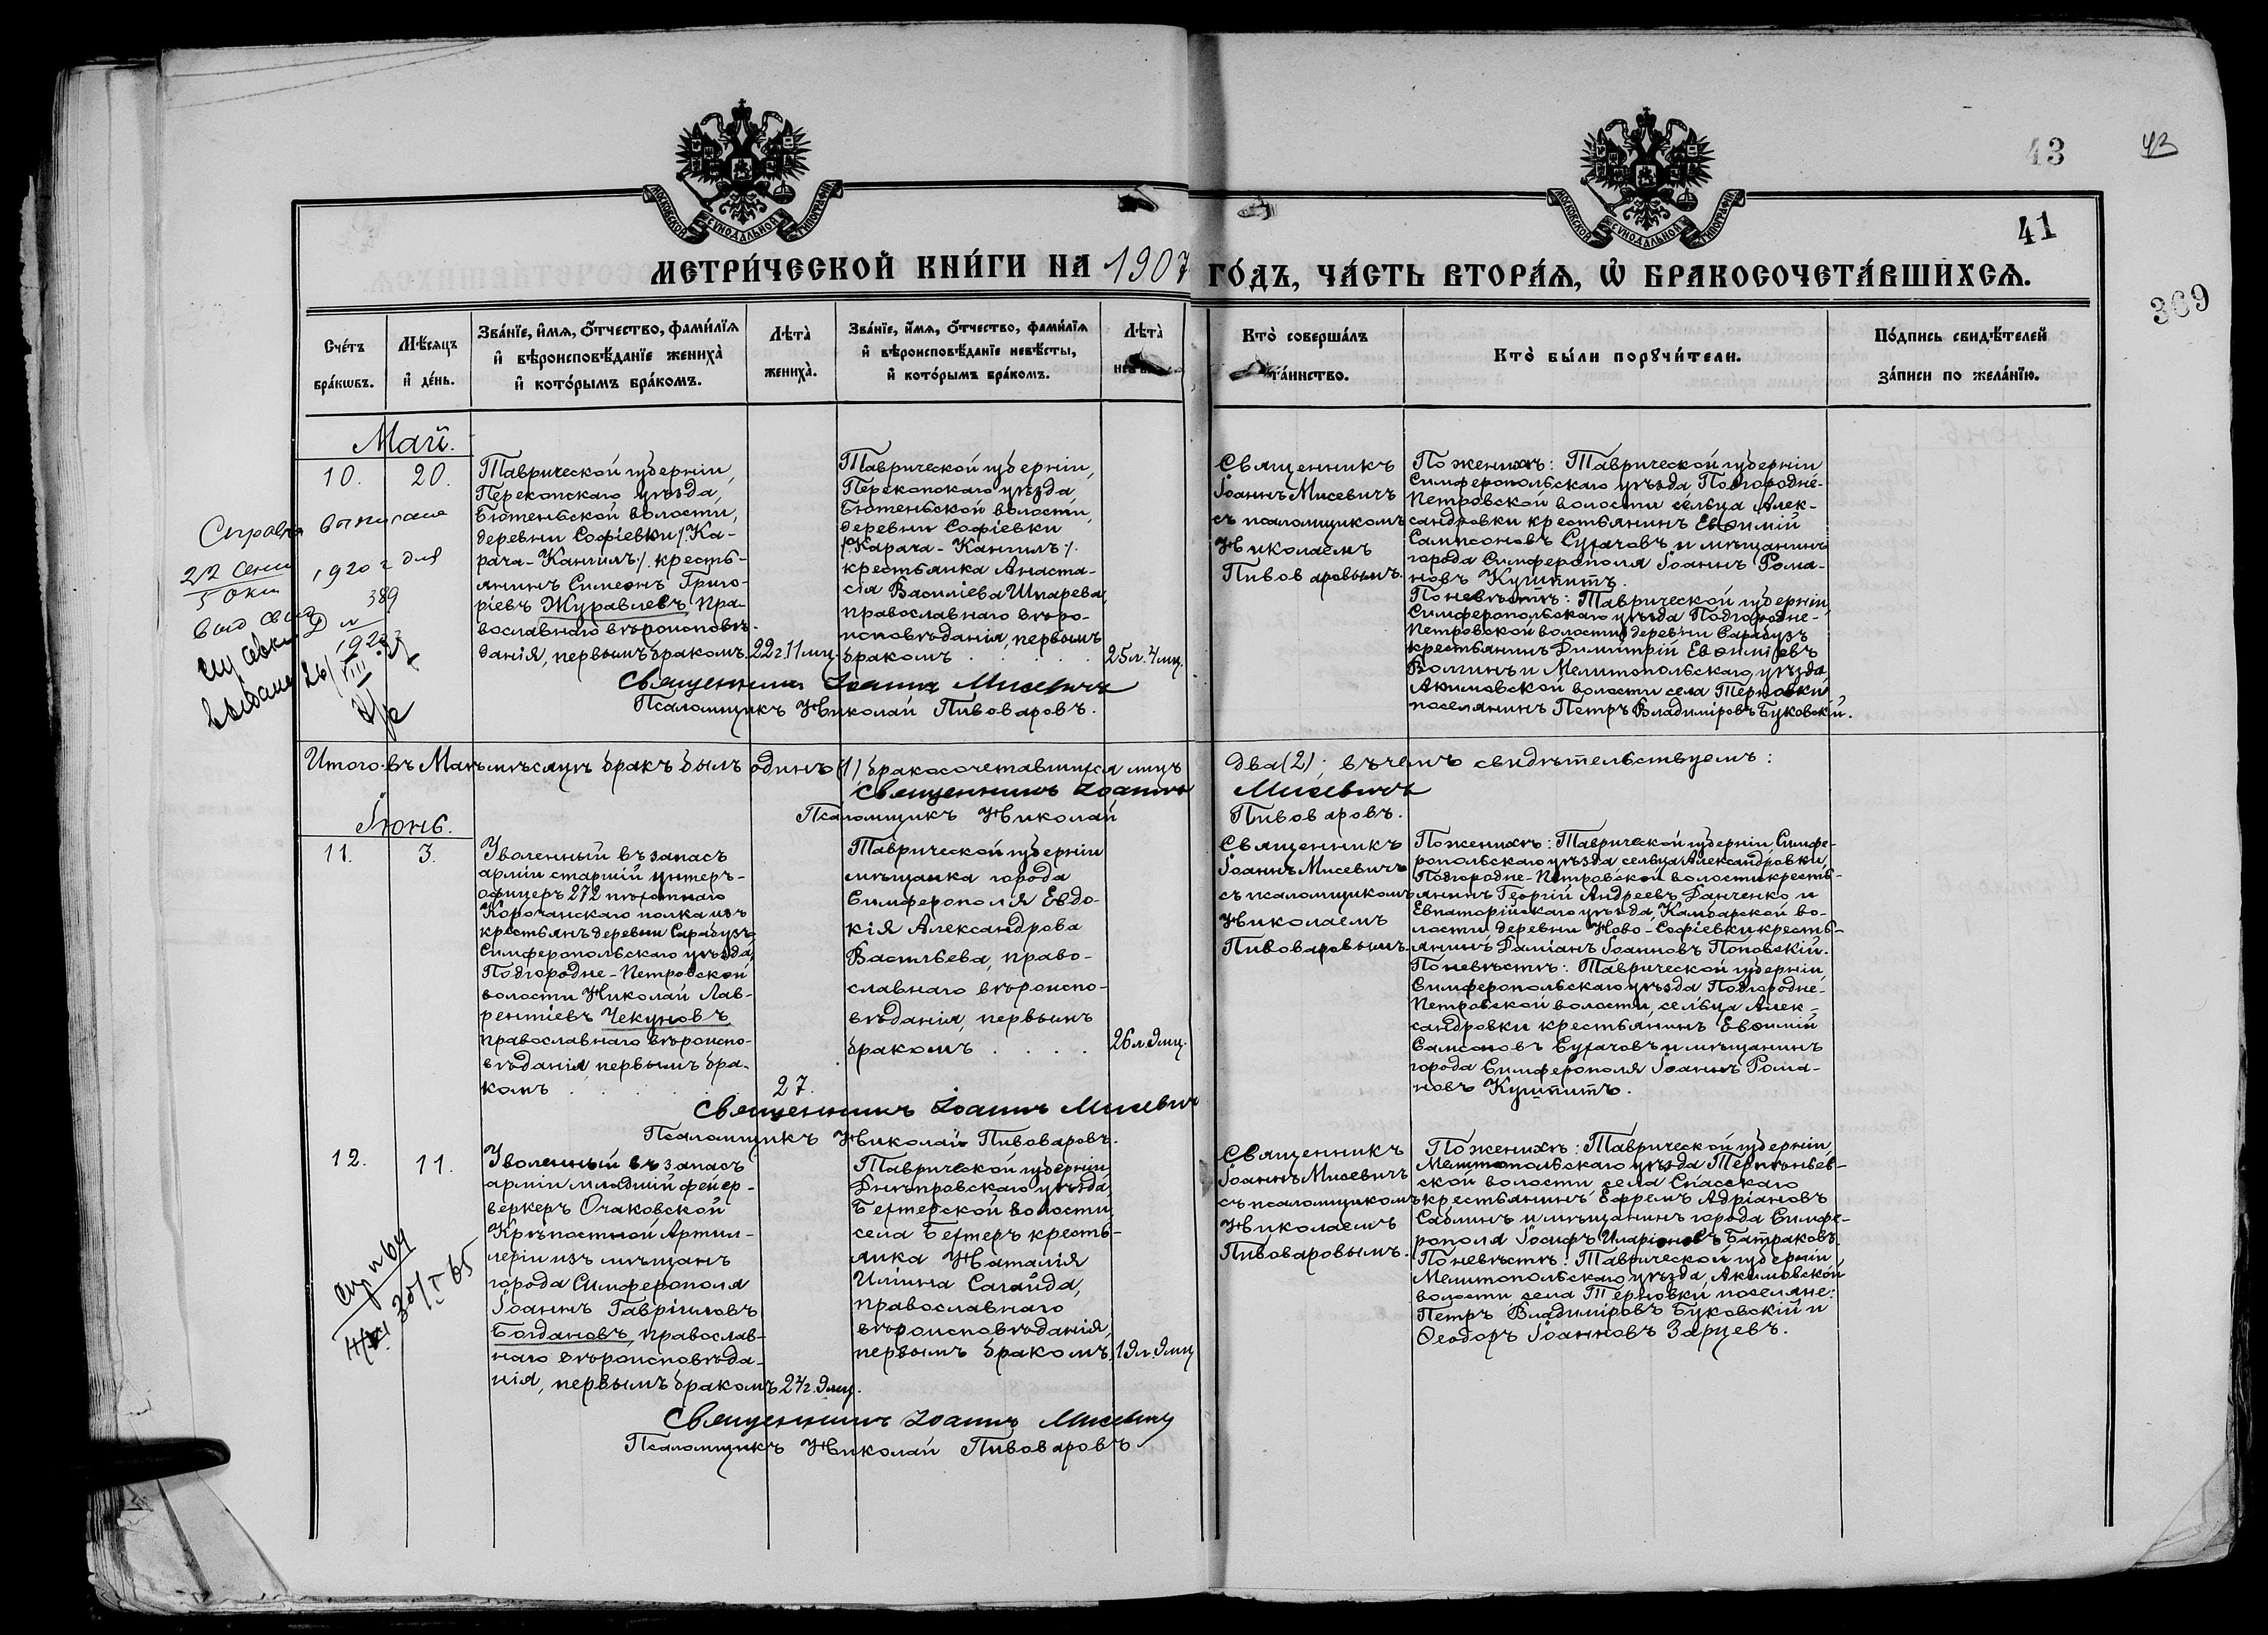 43
43
41
369
МОСКОВСКОЙ СУНОДАЛЬНОЙ ТИПОГРАФІИ
МОСКОВСКОЙ СУНОДАЛЬНОЙ ТИПОГРАФІИ
МЕТРИ́ЧЕСКОЙ КНИ́ГИ НА 1907 ГО́ДЪ, ЧА́СТЬ ВТОРА́Я, Ѡ БРАКОСОЧЕТА́ВШИХСЯ.
Сче́тъ
бра́кѡвъ.
Мѣ́сяцъ
и҆ де́нь.
Зва́нїе, и҆́мя, ѻ҆́тчество, фами́лїя
и҆ вѣроисповѣ́данїе жениха̀
и҆ кото́рымъ бра́комъ.
Лѣта̀
жениха̀.
Зва́нїе, и҆́мя, ѻ҆́тчество, фами́лїя
и҆ вѣроисповѣ́данїе невѣ́сты,
и҆ кото́рымъ бра́комъ.
Лѣта̀
Кто̀ соверша́лъ
та́инство.
Кто̀ бы́ли порꙋчи́тели.
По́дпись свидѣ́телей
за́писи по жела́нїю.
Май.
10.
20.
Таврической губерніи,
Перекопскаго уѣзда,
Бютеньской волости,
деревни Софіевки /:Ка-
рача-Кангилъ:/ кресть-
янинъ Симеонъ Григо-
ріевъ Журавлевъ, пра-
вославнаго вѣроисповѣ-
данія, первымъ бракомъ.
22 г. 11 мц.
Таврической губерніи,
Перекопскаго уѣзда,
Бютеньской волости,
деревни Софіевки
/:Карача-Кангилъ:/
крестьянка Анаста-
сія Василіева Шпарева,
православнаго вѣро-
исповѣданія, первымъ
бракомъ . . . .
25 л. 4 мц.
Священникъ Іоаннъ Мисевичъ
Псаломщикъ Николай Пивоваровъ.
Священникъ
Іоаннъ Мисевичъ
съ псаломщикомъ
Николаемъ
Пивоваровымъ.
По женихѣ: Таврической губерніи
Симферопольскаго уѣзда Подгородне-
Петровской волости сельца Алек-
сандровки крестьянинъ Евѳимій
Сампсоновъ Сугачовъ и мѣщанинъ
города Симферополя Іоаннъ Рома-
новъ Кушпитъ.
По невѣстѣ: Таврической губерніи,
Симферопольскаго уѣзда Подгородне-
Петровской волости деревни Сарабузъ
крестьянинъ Димитрій Евѳиміевъ
Волгинъ и Мелитопольскаго уѣзда,
Акимовской волости села Терновки
поселянинъ Петръ Владиміровъ Буковскій.
Справка выписана
22 Сент 1920 г для
5 Окт
389
выдана 26/VIII
Итого въ Маѣ мѣсяцѣ бракъ былъ одинъ (1) бракосочетавшихся лицъ два (2); въ чемъ свидѣтельствуемъ:
Священникъ Іоаннъ Мисевичъ
Псаломщикъ Николай Пивоваровъ.
Іюнь.
11.
3.
Уволенный въ запасъ
арміи старшій унтеръ-
офицеръ 272 пѣхотнаго
Корочанскаго полка изъ
крестьянъ деревни Сарабузъ
Симферопольскаго уѣзда,
Подгородне-Петровской
волости Николай Лав-
рентіевъ Чекуновъ
православнаго вѣроиспо-
вѣданія, первымъ бра-
комъ . . . .
27.
Таврической губерніи
мѣщанка города
Симферополя Евдо-
кія Александрова
Васильева, право-
славнаго вѣроиспо-
вѣданія, первымъ
бракомъ . . . .
26 л. 9 мц.
Священникъ Іоаннъ Мисевичъ
Псаломщикъ Николай Пивоваровъ.
Священникъ
Іоаннъ Мисевичъ
съ псаломщикомъ
Николаемъ
Пивоваровымъ.
По женихѣ: Таврической губерніи Симфе-
ропольскаго уѣзда сельца Александровки,
Подгородне-Петровской волости кресть-
янинъ Георгій Андреевъ Данченко и
Евпаторійскаго уѣзда, Камбарской во-
лости деревни Ново-Софіевки кресть-
янинъ Даміанъ Іоанновъ Поповскій.
По невѣстѣ: Таврической губерніи,
Симферопольскаго уѣзда Подгородне-
Петровской волости, сельца Алек-
сандровки крестьянинъ Евѳимій
Самсоновъ Сугачовъ и мѣщанинъ
города Симферополя Іоаннъ Рома-
новъ Кушпитъ.
12.
11.
Уволенный въ запасъ
арміи младшій фейер-
веркеръ Очаковской
Крѣпостной Артил-
леріи изъ мѣщанъ
города Симферополя
Іоаннъ Гавріиловъ
Богдановъ, православ-
наго вѣроисповѣда-
нія, первымъ бракомъ
24 г. 9 мц.
Таврической губерніи
Днѣпровскаго уѣзда,
Бехтерской волости,
села Бехтеръ кресть-
янка Наталія
Иліина Сагайда,
православнаго
вѣроисповѣданія,
первымъ бракомъ.
19 л. 9 мц
Священникъ Іоаннъ Мисевичъ
Псаломщикъ Николай Пивоваровъ
Священникъ
Іоаннъ Мисевичъ
съ псаломщикомъ
Николаемъ
Пивоваровымъ.
По женихѣ: Таврической губерніи,
Мелитопольскаго уѣзда Терпѣньев-
ской волости села Спасскаго
крестьянинъ Ефремъ Адріановъ
Саблинъ и мѣщанинъ города Симфе-
рополя Іосифъ Иларіоновъ Батраковъ.
По невѣстѣ: Таврической губерніи
Мелитопольскаго уѣзда, Акимовской
волости села Терновки, поселяне:
Петръ Владиміровъ Буковскій и
Ѳеодоръ Іоанновъ Заруевъ.